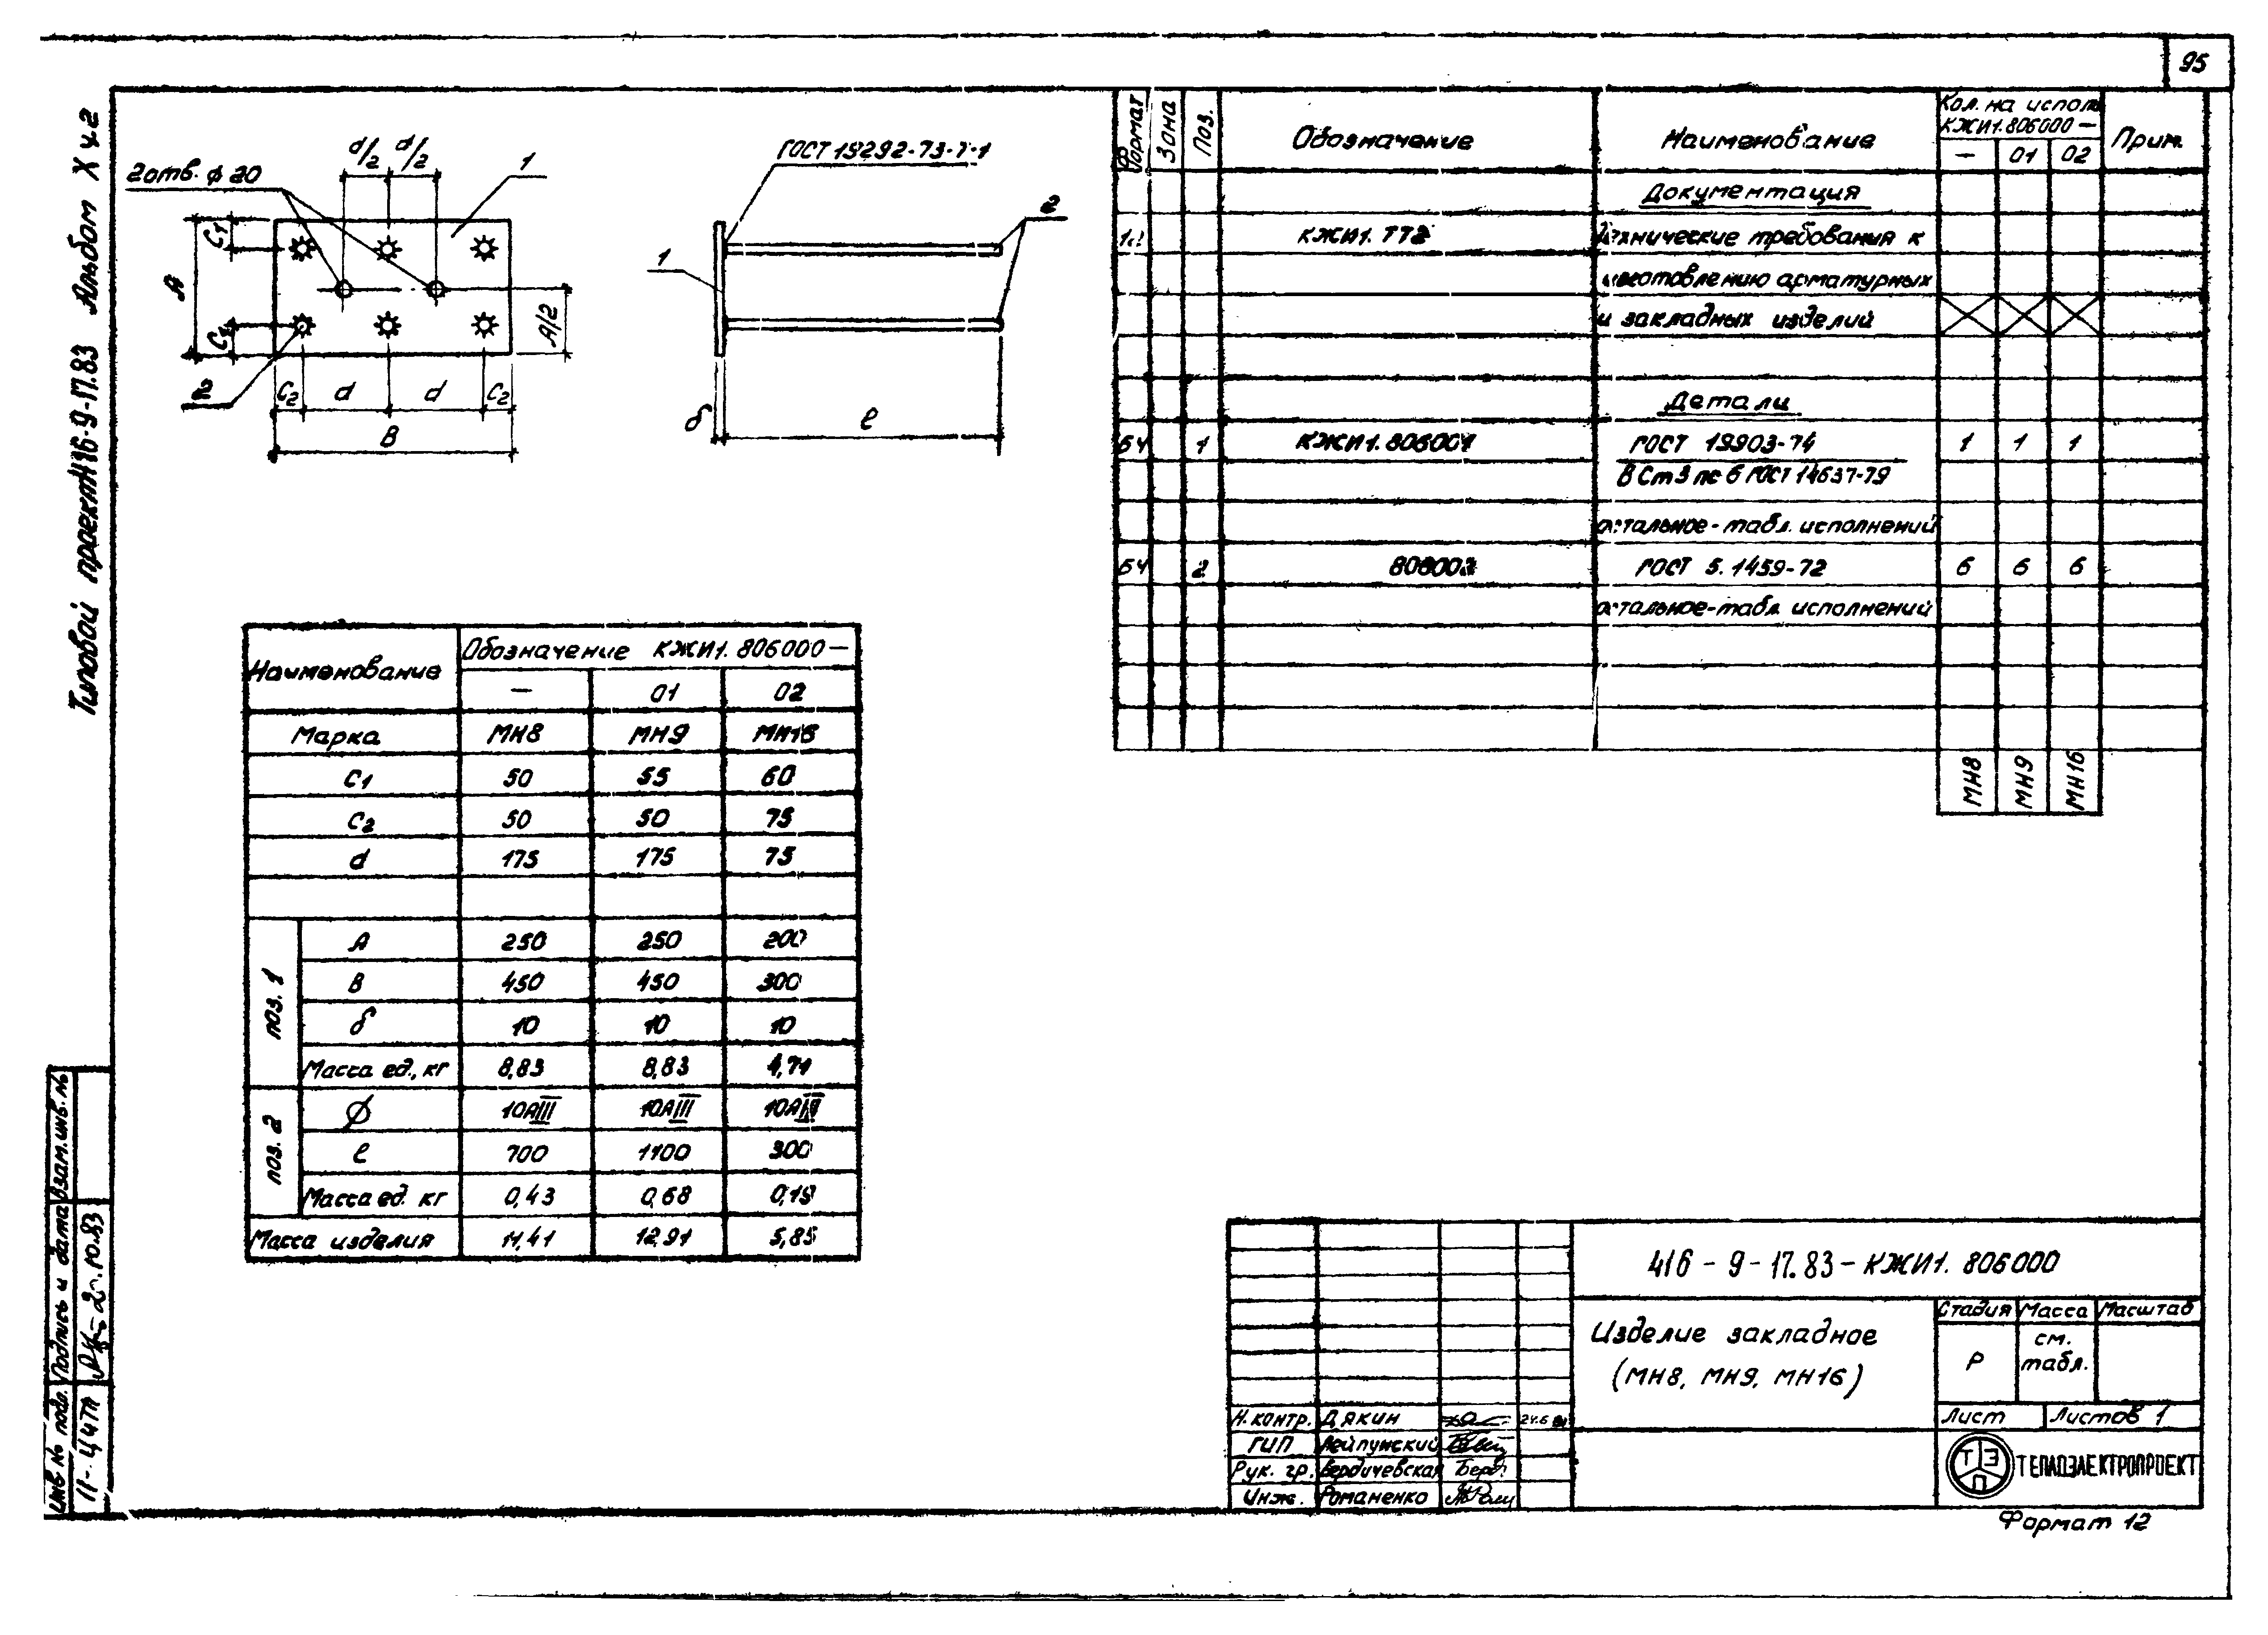 95
Типовой проект 416-9-17.83 Альбом X ч.2
2 отв. ϕ 20
d/2 d/2
1
C1
A
C1
A/2
2
C2 d d C2
B
ГОСТ 19292-73-Т-1
2
1
δ ℓ
Формат Зона Поз. Обозначение Наименование Кол. на исполн. КЖИ1.806000 — Прим.
— 01 02
Документация
КЖИ1. ТТ2 Технические требования к
изготовлению арматурных
и закладных изделий
Детали
БЧ 1 КЖИ1. 806001 ГОСТ 19903-74 1 1 1
В Ст 3 пс 6 ГОСТ 14637-79
остальное - табл. исполнений
БЧ 2 806002 ГОСТ 5.1459-72 6 6 6
остальное - табл. исполнений
МН8 МН9 МН16
Наименование Обозначение КЖИ1. 806000 —
— 01 02
Марка МН8 МН9 МН16
C1 50 55 60
C2 50 50 75
d 175 175 75
поз. 1
A 250 250 200
B 450 450 300
δ 10 10 10
Масса ед., кг 8,83 8,83 4,71
поз. 2
∅ 10АIII 10АIII 10АIII
ℓ 700 1100 300
Масса ед. кг 0,43 0,68 0,19
Масса изделия 11,41 12,91 5,85
Инв № подл. Подпись и дата Взам. инв. №
416 - 9 - 17.83 - КЖИ1. 806000
Изделие закладное
(МН8, МН9, МН16)
Стадия Масса Масштаб
Р см. табл.
Лист Листов 1
Н. контр. Дякин
ГИП Лейпунский
Рук. гр. Бердичевская
Инж. Романенко
ТЭП ТЕПЛОЭЛЕКТРОПРОЕКТ
Формат 12